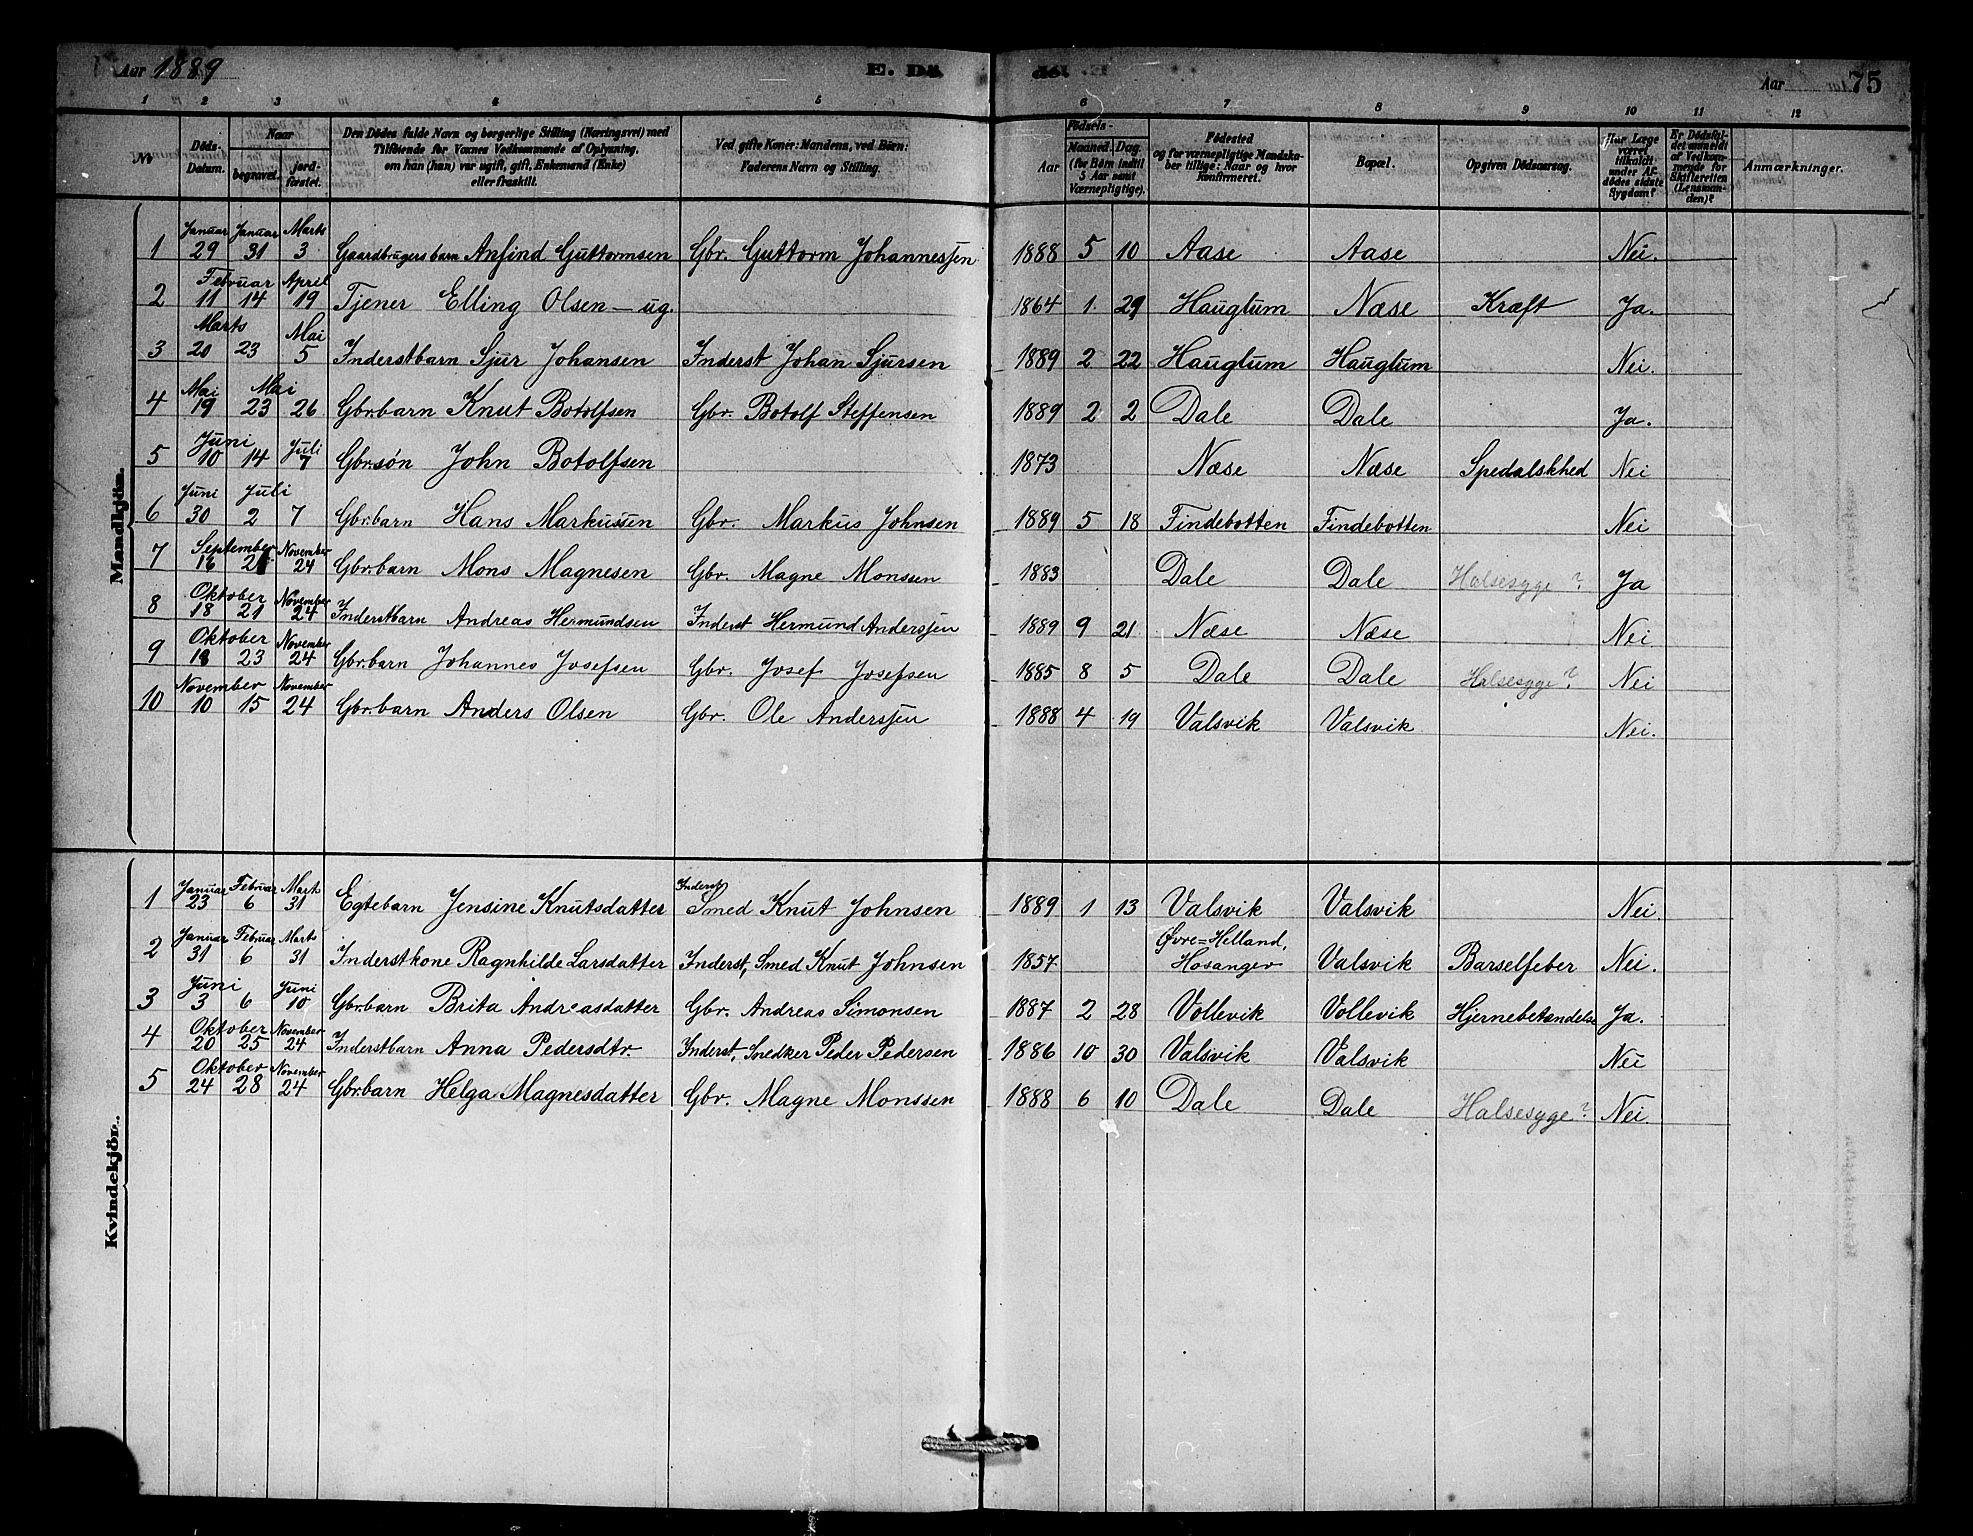 Aar 1889
E. Dö
Aar 75
1 2 3 4 5 6 7 8 9 10 11 12
No
Döds-Datum.
Naar
begravet.
jord-fæstet.
Den Dödes fulde Navn og borgerlige Stilling (Næringsvei) med
Tilföiende for Voxnes Vedkommende af Oplysning,
om han (hun) var ugift, gift, Enkemand (Enke)
eller fraskilt.
Ved gifte Koner: Mandens, ved Börn:
Faderens Navn og Stilling.
Födsels-
Aar
Maaned. Dag.
(for Börn indtil
5 Aar samt
Værnepligtige).
Födested
og for værnepligtige Mandska-
ber tillige: Naar og hvor
konfirmeret.
Bopæl.
Opgiven Dödsaarsag.
Har Læge
været
tilkaldt
under Af-
dödes sidste
Sygdom?
Er Dödsfal-
det anmeldt
af Vedkom-
mende for
Skifteretten
(Lensman-
den)?
Anmærkninger.
Mandkjön.
1 Januar 29 Januar 31 Marts 3 Gaardbrugersbarn Anfind Guttormsen Gbr. Guttorm Johannessen 1888 5 10 Aase Aase Nei.
2 Februar 11 14 April 19 Tjener Elling Olsen — ug. 1864 1. 29 Hauglum Næse Kræft Ja.
3 Marts 20 23 Mai 5 Inderstbarn Sjur Johansen Inderst Johan Sjursen 1889 2 22 Hauglum Hauglum Nei.
4 Mai 19 Mai 23 26 Gbr.barn Knut Botolfsen Gbr. Botolf Steffensen 1889 2 2 Dale Dale Ja.
5 Juni 10 14 Juli 7 Gbr.søn John Botolfsen 1873 Næse Næse Spedalskhed Nei
6 Juni 30 Juli 2 7 Gbr.barn Hans Markussen Gbr. Markus Johnsen 1889 5 18 Findebotten Findebotten Nei
7 September 16 November 24 Gbr.barn Mons Magnesen Gbr. Magne Monssen 1883 Dale Dale Halsesyge? Ja
8 Oktober 18 21 November 24 Inderstbarn Andreas Hermundsen Inderst Hermund Anderssen 1889 9 21 Næse Næse Nei.
9 Oktober 18 23 November 24 Gbr.barn Johannes Josefsen Gbr. Josef Josefsen 1885 8 5 Dale Dale Halsesyge? Nei
10 November 10 15 November 24 Gbr.barn Anders Olsen Gbr. Ole Anderssen 1888 4 19 Valsvik Valsvik Nei.
Kvindekjön.
1 Januar 23 Februar 6 Marts 31 Egtebarn Jensine Knutsdatter Inderst Smed Knut Johnsen 1889 1 13 Valsvik Valsvik Nei
2 Januar 31 Februar 6 Marts 31 Inderstkone Ragnhilde Larsdatter Inderst, Smed Knut Johnsen 1857 Øvre=Helland, Hosanger Valsvik Barselfeber Nei.
3 Juni 3 6 Juni 10 Gbr.barn Brita Andreasdatter Gbr. Andreas Simonsen 1887 2 28 Vollevik Vollevik Hjernebetændelse Ja.
4 Oktober 20 25 November 24 Inderstbarn Anna Pedersdtr. Inderst, Snedker Peder Pedersen 1886 10 30 Valsvik Valsvik Nei
5 Oktober 24 28 November 24 Gbr.barn Helga Magnesdatter Gbr. Magne Monssen 1888 6 10 Dale Dale Halsesyge? Nei.